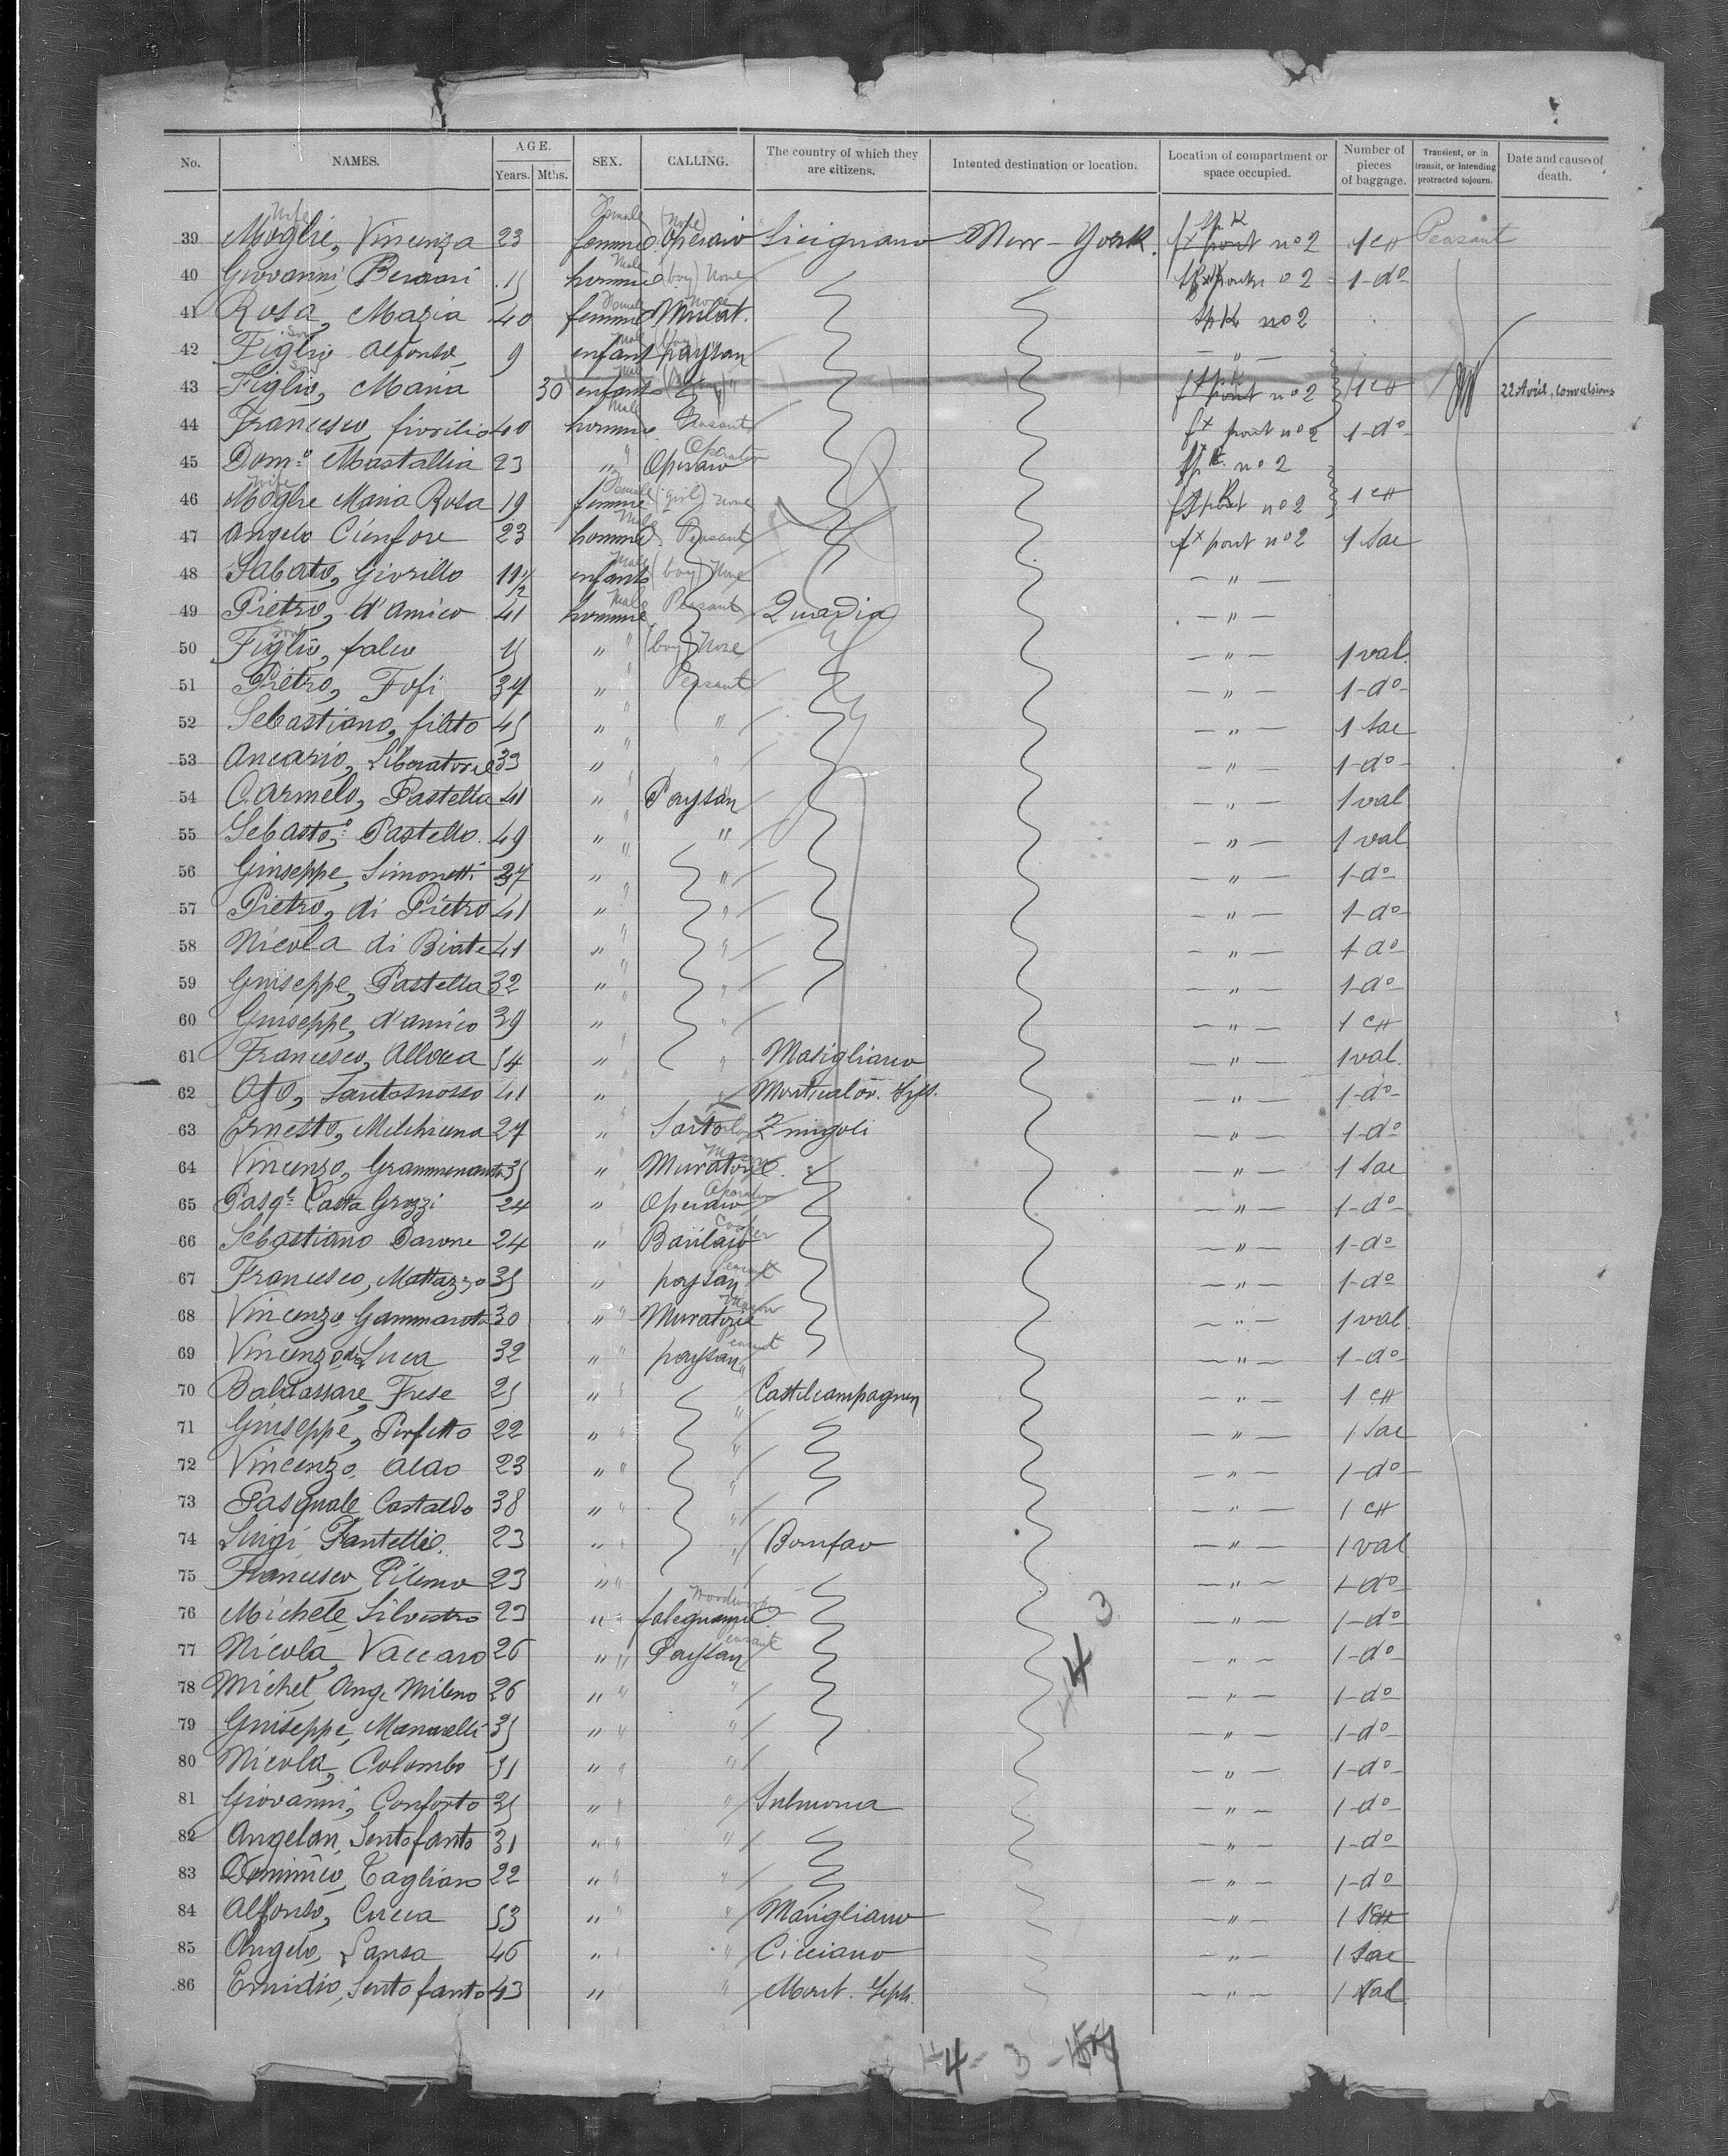 No. NAMES. AGE. Years. Mths. SEX. CALLING. The country of which they are citizens. Intented destination or location. Location of compartment or space occupied. Number of pieces of baggage. Transient, or in transit, or intending protracted sojourn. Date and causes of death.
39 Moglie, Vincenza 23 femme Operaio New-York. n° 2 Peasant
40 Giovanni homme (boy) None n° 2 1-d°
41 Rosa, Maria 40 femme n° 2
42 Figlio Alfonso 9 enfant paysan — " —
43 Figlio, Maria 30 enfant n° 2 22 Avril, convulsions
44 Francesco, 40 homme Peasant pont n° 2 1-d°
45 Dom.° Mastallia 23 " Operaio Operator n° 2
46 Moglie Maria Rosa 19 femme (girl) none n° 2
47 Angelo Cienfore 23 homme Peasant pont n° 2 1 Sac
48 Sabato, Giorillo 11 enfant (boy) None — " —
49 Pietro, d'Amico 41 homme Peasant Quadia — " —
50 Figlio, falco " (boy) None — " — 1 val.
51 Pietro, Fofi 34 " Peasant — " — 1-d°
52 Sebastiano, fileto 45 " " — " — 1 Sac
53 Ancario, Liberatore 33 " " — " — 1-d°
54 Carmelo, Pastella 41 " Paysan — " — 1 val
55 Sebasto, Pastello 49 " " — " — 1 val
56 Giuseppe, Simonetti 37 " " — " — 1-d°
57 Pietro, di Pietro 41 " " — " — 1-d°
58 Nicola di Biate 41 " " — " — 1 d°
59 Giuseppe, Pastella 32 " " — " — 1-d°
60 Giuseppe, d'amico 39 " " — " —
61 Francesco, Alloca 54 " " Marigliano — " — 1 val.
62 Ato, Santosuosso 41 " " — " — 1-d°
63 Ernesto, 27 " Sarto Zmigoli — " — 1-d°
64 Vincenzo, 35 " Muratore Mason — " — 1 Sac
65 Pasq.e Casta Grozzi 24 " Operaio Operator — " — 1-d°
66 Sebastiano Darone 24 " Barilaio Cooper — " — 1-d°
67 Francesco, Mattazzo 35 " paysan Peasant — " — 1-d°
68 Vincenzo Gammarota 30 " Muratore Mason — " — 1 val
69 Vincenzo de Luca 32 " paysan Peasant — " — 1-d°
70 Baldassare, Frese 25 " " Castelcampagnen — " —
71 Giuseppe, Perfetto 22 " " — " — 1 Sac
72 Vincenzo Aldo 23 " " — " — 1-d°
73 Pasquale Castaldo 38 " " — " —
74 Luigi Fantelli 23 " " — " — 1 val
75 Francesco Pileno 23 " — " — 1-d°
76 Michele, Silvestro 23 " falegname — " — 1-d°
77 Nicola, Vaccaro 26 " Paysan Peasant — " — 1-d°
78 Michel Ang. Mileno 26 " " — " — 1-d°
79 Giuseppe, Manarelli 35 " " — " — 1-d°
80 Nicola, Colombo 31 " " — " — 1-d°
81 Giovanni, Conforto 35 " " Sulmona — " — 1-d°
82 Angelan, Sentofanto 31 " " — " — 1-d°
83 Dominico, Tagliano 22 " " — " — 1-d°
84 Alfonso, Cucca 53 " " Marigliano — " —
85 Angelo, Sansa 46 " " Cicciano — " — 1 Sac
86 Emidio, Sentofanto 43 " " Mont. — " — 1 Val